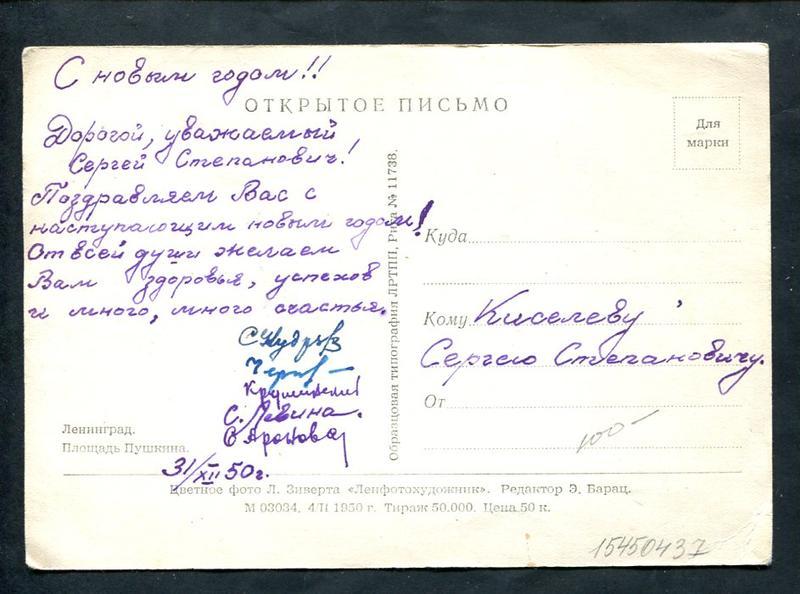 С новым годом!!
ОТКРЫТОЕ ПИСЬМО
Для
марки
Дорогой, уважаемый
Сергей Степанович!
Поздравляем Вас с
наступающим новым годом!
От всей души желаем
Вам здоровья, успехов
и много, много счастья.
С. Левина.
31/XII 50 г.
Ленинград.
Площадь Пушкина.
Образцовая типография ЛРТПП. Рига № 11738.
Куда
Кому Киселеву
Сергею Степановичу.
От
100-
Цветное фото Л. Зиверта «Ленфотохудожник». Редактор Э. Барац.
М 03034, 4/II 1950 г. Тираж 50.000. Цена 50 к.
15450437